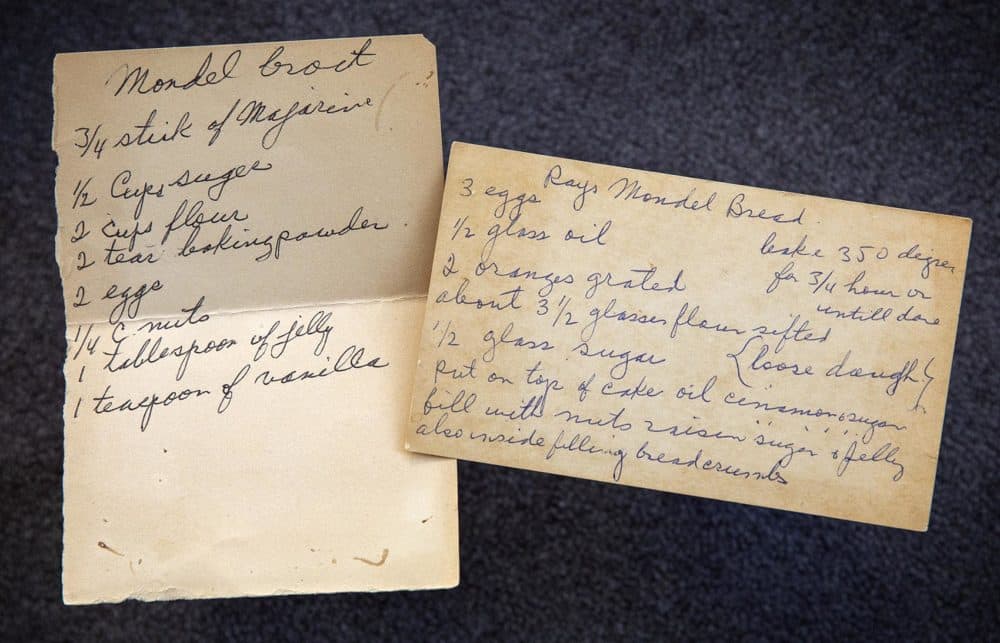 Mondel broit
3/4 stick of Majarine
1/2 Cups suger
2 cups flour
2 teas bakingpowder.
2 eggs
1/4 c nuts
1 tablespoon of jelly
1 teaspoon of vanilla
Rays Mondel Bread.
3 eggs
1/2 glass oil
2 oranges grated
about 3 1/2 glasses flour sifted
1/2 glass sugar
bake 350 degree
for 3/4 hour or
untill done
{loose daugh}
put on top of cake oil cinamon, sugar
fill with nuts raisin "sugar" & Jelly
also inside filling breadcrumbs